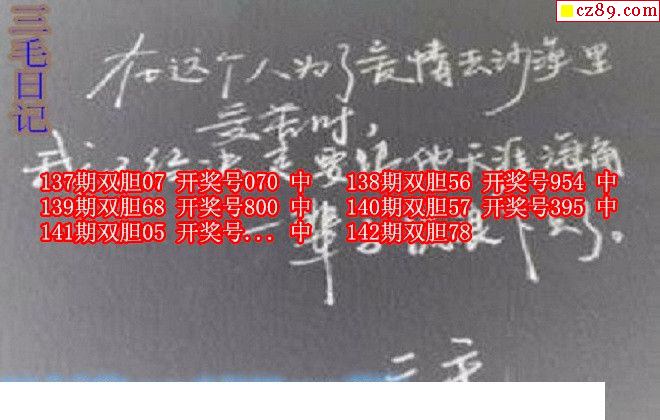 三毛日记
cz89.com
在这个人为了爱情去沙漠里
受苦时,
我心里已经决定要跟他天涯海角
137期双胆07 开奖号070 中 138期双胆56 开奖号954 中
139期双胆68 开奖号800 中 140期双胆57 开奖号395 中
141期双胆05 开奖号... 中 142期双胆78
一辈子流浪下去了。
三毛